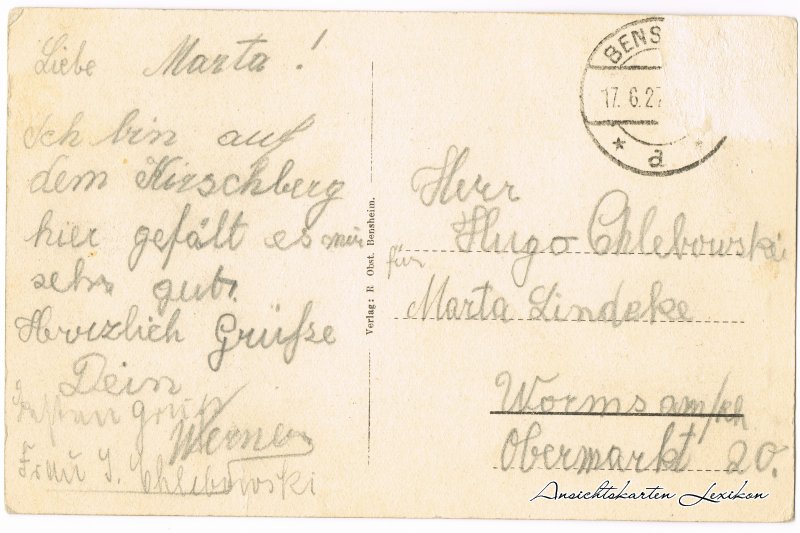 Liebe Marta!
Ich bin auf
dem Kirschberg
hier gefält es mir
sehr gut.
Herzlich Grüße
Dein
Werner
gruß
Frau J. Chlebowski
Verlag: R. Obst. Bensheim.
BENS
17.6.27
* a *
Herr
Hugo Chlebowski
für
Marta Lindeke
Worms am/Rh
Obermarkt 20.
Ansichtskarten Lexikon